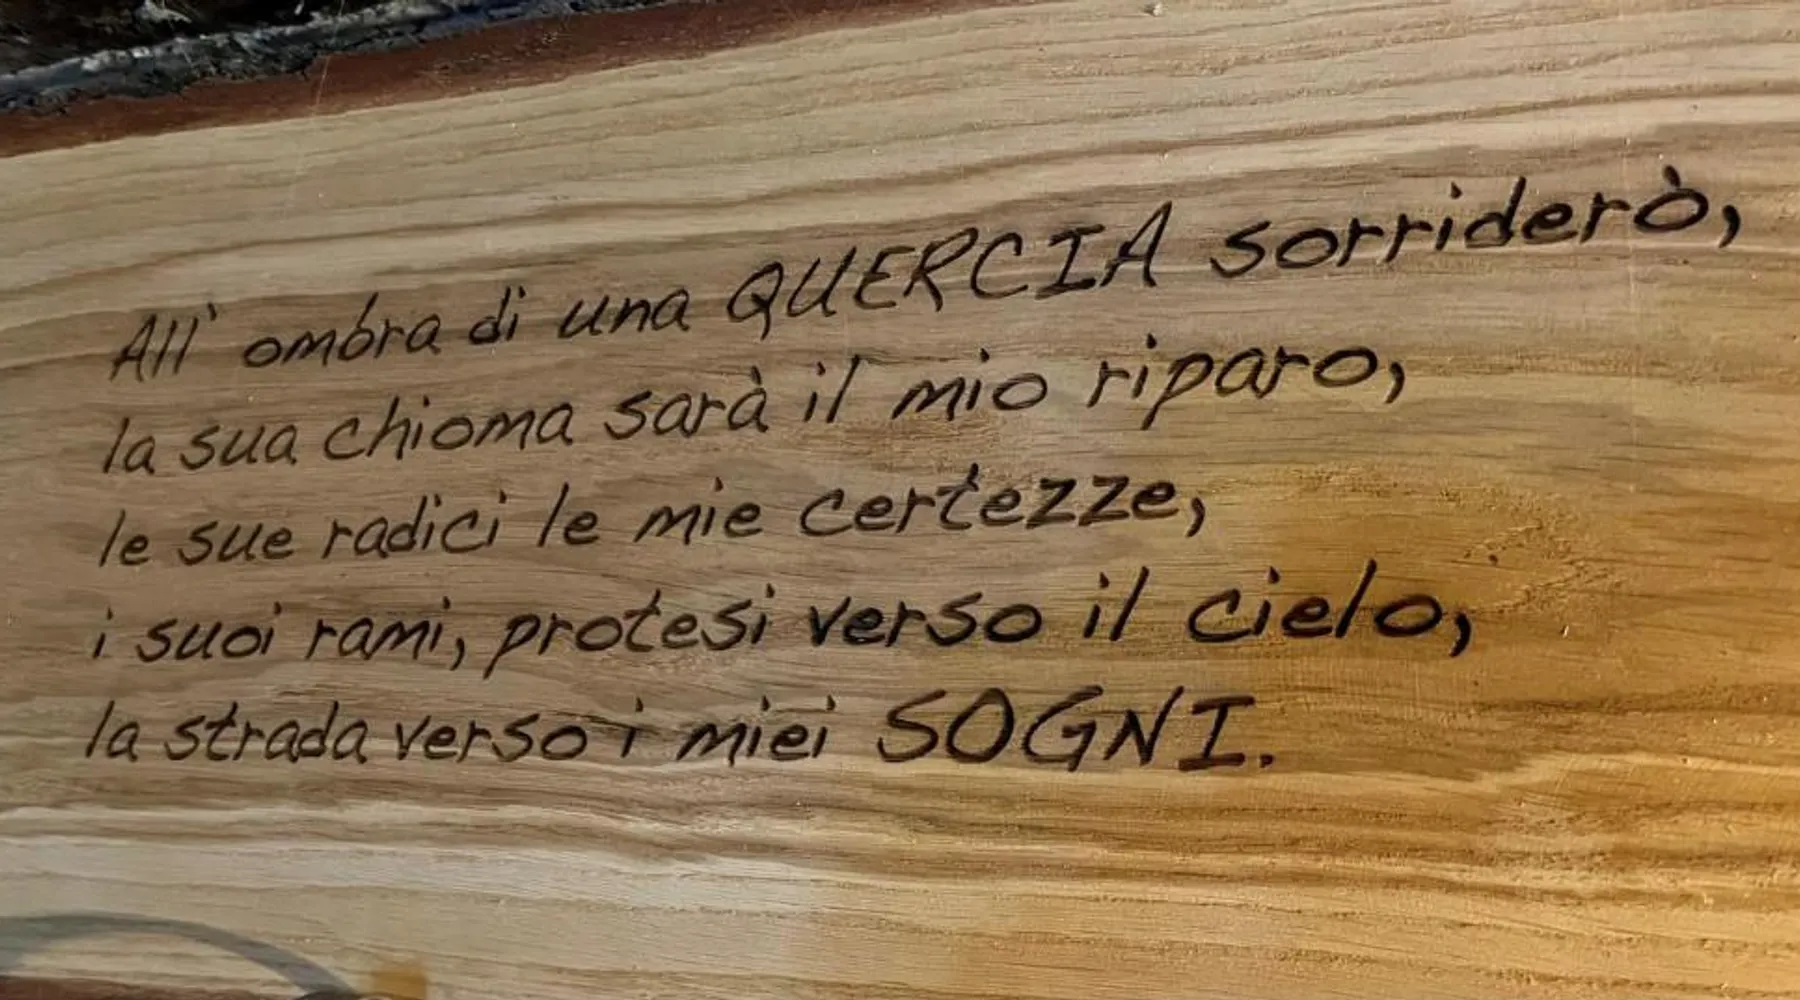 All' ombra di una QUERCIA sorriderò,
la sua chioma sarà il mio riparo,
le sue radici le mie certezze,
i suoi rami, protesi verso il cielo,
la strada verso i miei SOGNI.